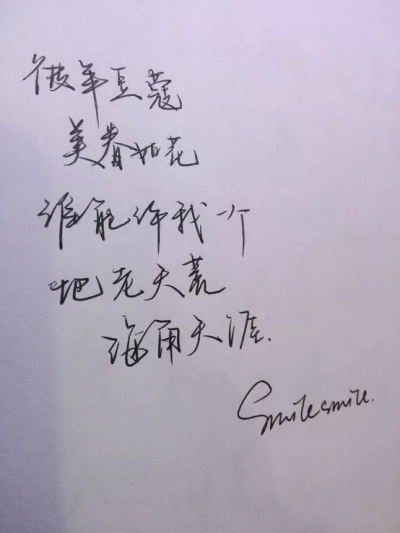 彼年豆蔻
美眷如花
谁能许我一个
地老天荒
海角天涯.
Smilesmile.